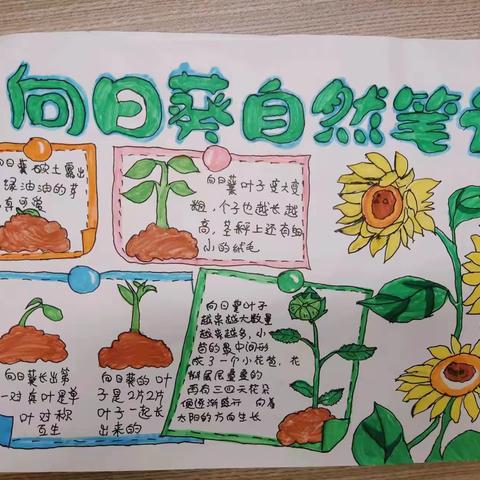 向日葵自然笔
向日葵破土露出
绿油油的芽
真可爱
向日葵叶子变大变
粗,个子也越长越
高,茎秆上还有细
小的绒毛
向日葵长出第
一对真叶是单
叶对称
互生
向日葵的叶
子是2片2片
叶子一起长
出来的
向日葵叶子
越来越大数量
越来越多,小
苗的最中间形
成了一个小花苞,花
瓣层层叠叠的
再有三四天花朵
便逐渐盛开 向着
太阳的方向生长